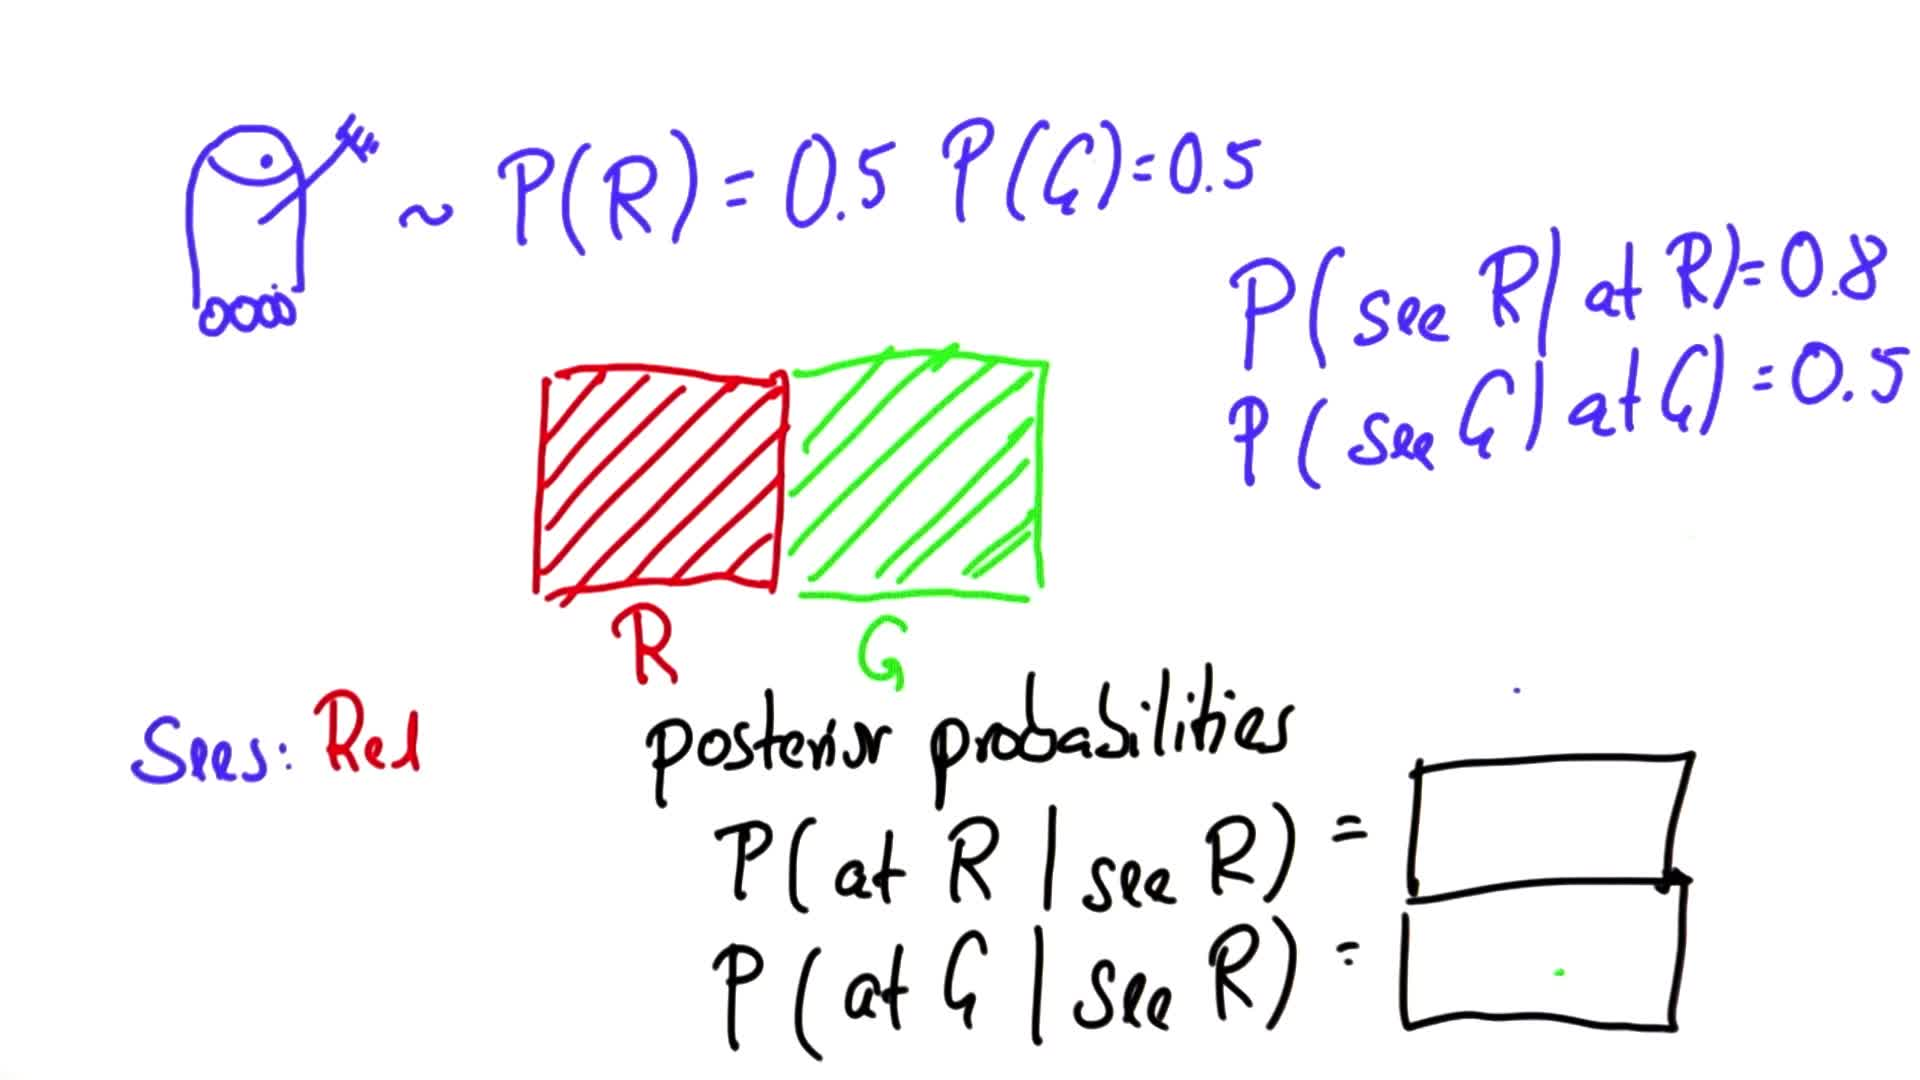 ~ P(R) = 0.5 P(G) = 0.5
P(see R | at R) = 0.8
P(see G | at G) = 0.5
R G
Sees: Red
posterior probabilities
P(at R | see R) =
P(at G | see R) =